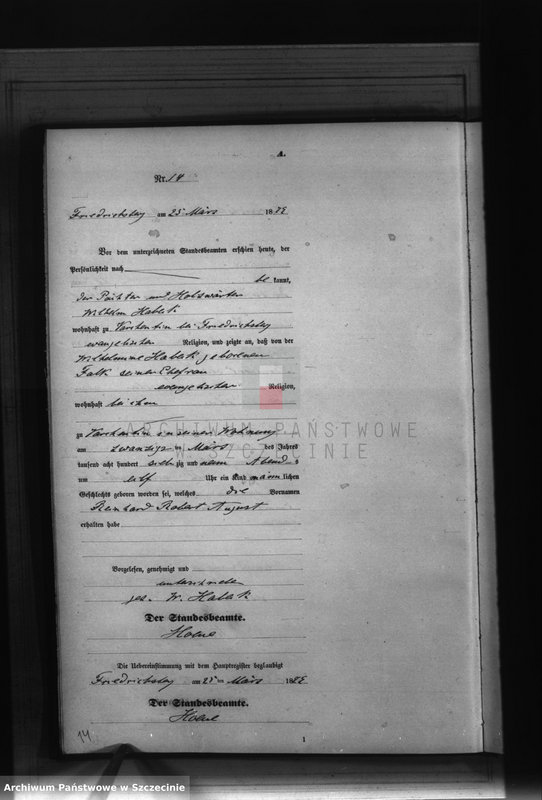 A.
Nr. 14
Friedrichstag am 25 März 1879
Vor dem unterzeichneten Standesbeamten erschien heute, der
Persönlichkeit nach
be kannt,
der Pächter und Holzwärter
Wilhelm Habeck
wohnhaft zu bei
evangelischer Religion, und zeigte an, daß von der
Wilhelmine Habeck geborenen
Falk seiner Ehefrau
evangelischer Religion,
wohnhaft bei ihm
zu in seiner Wohnung
am zwanzigsten März des Jahres
tausend acht hundert sieb zig und neun Abends
um elf Uhr ein Kind männ lichen
Geschlechts geboren worden sei, welches die Vornamen
Reinhard Robert August
erhalten habe
Vorgelesen, genehmigt und
unterschrieben
gez. W. Habeck
Der Standesbeamte.
Die Uebereinstimmung mit dem Hauptregister beglaubigt
am 25 ten März 1879
Der Standesbeamte.
14
1
ARCHIWUM PAŃSTWOWE
SZCZECINIE
Archiwum Państwowe w Szczecinie